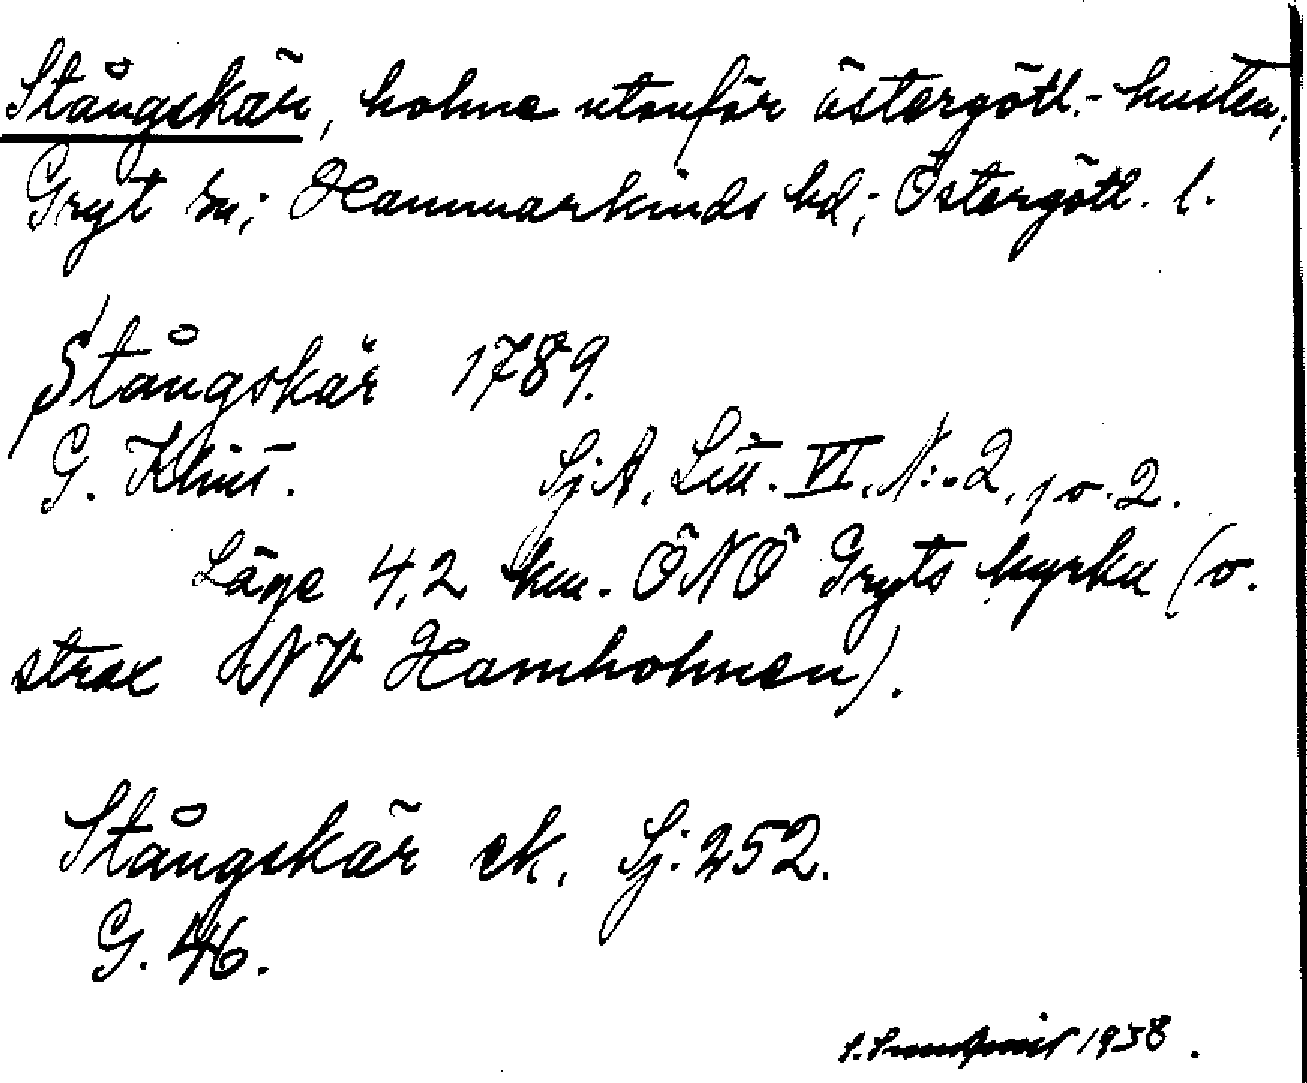 Stångskär, holme utanför östergötl.-kusten;
Gryt sn; Hammarkinds hd; Östergötl. l.
Stångskär 1789.
G. Klint. Sj.A, Litt. VI, N:o 2, 2.
Läge 4,2 km. ÖNÖ Gryts kyrka (o.
strax NV Hamnholmen).
Stångskär ek. Sj: 252.
G. 46.
1938.